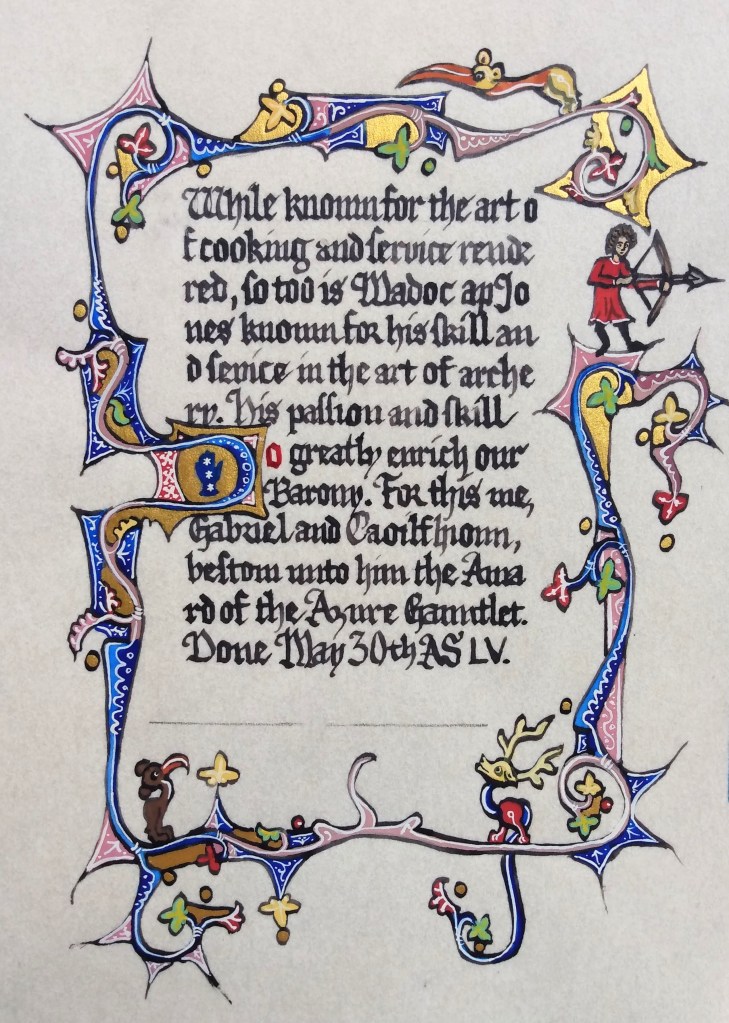 While known for the art o
f cooking and service rende
red, so too is Madoc ap Jo
nes known for his skill an
d service in the art of arche
ry. His passion and skill
So greatly enrich our
Barony. For this we,
Gabriel and Caoilfhionn,
bestow unto him the Awa
rd of the Azure Gauntlet.
Done May 30th AS LV.